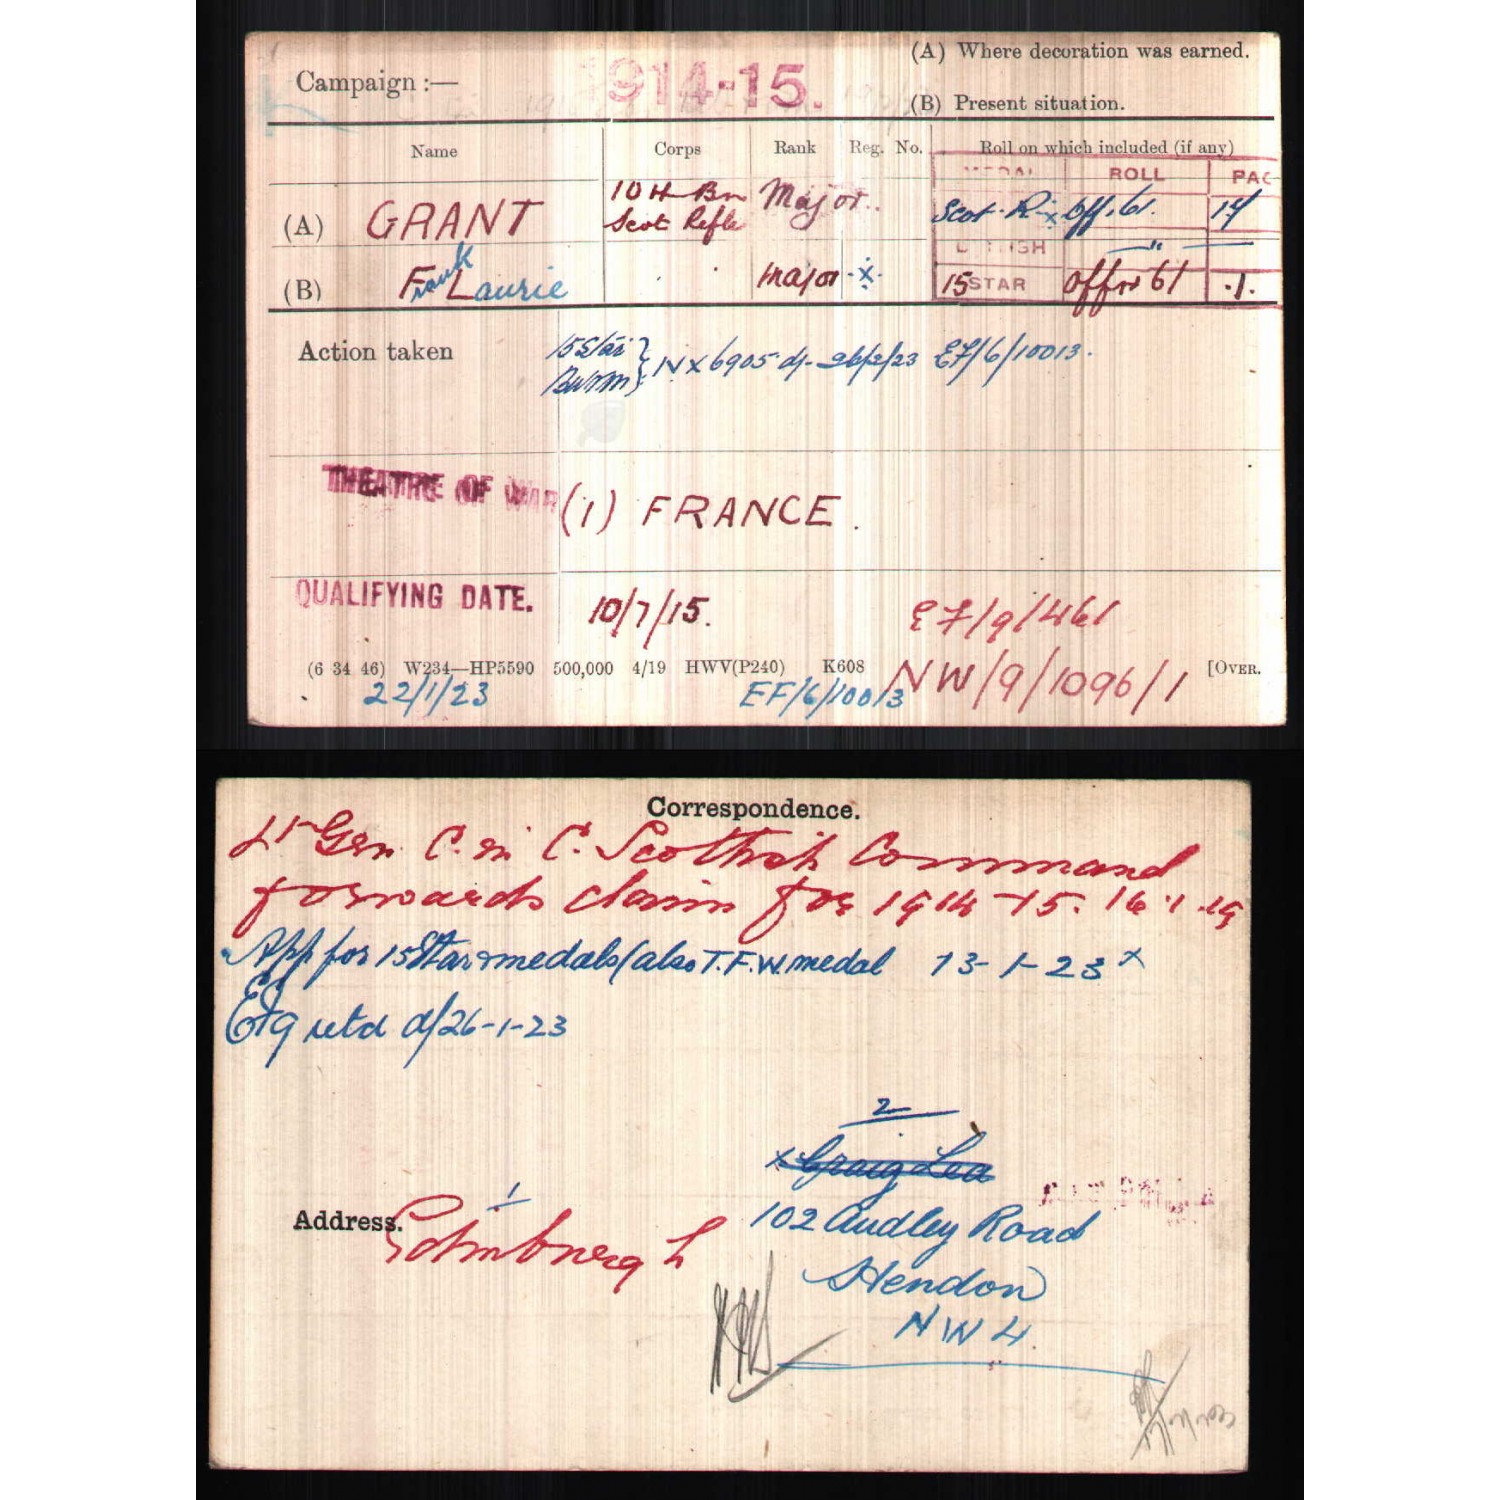 Campaign :— 1914-15.
(A) Where decoration was earned.
(B) Present situation.
Name Corps Rank Reg. No. Roll on which included (if any)
MEDAL ROLL PAG
(A) GRANT 10th Bn Scot Rifle Major. Scot. R. x Off.61. 14
(B) Frank Laurie Major x BRITISH " 
15 STAR Off 61 1.
Action taken 15 Star
BWVM } NX 6905 d/- 26/2/23 EF/6/10013.
THEATRE OF WAR (1) FRANCE.
QUALIFYING DATE. 10/7/15. EF/9/461
(6 34 46) W234—HP5590 500,000 4/19 HWV(P240) K608 NW/9/1096/1 [OVER.
22/1/23 EF/6/10013
Correspondence.
Lt Gen C. in C. Scottish Command
forwards claim for 1914-15. 16.1.19
App for 15 Star & medals (also T.F.W. medal 13-1-23 x
retd d/26-1-23
2
x Craig Lea
1
Address. Edinburgh
102 Audley Road
Hendon
NW4